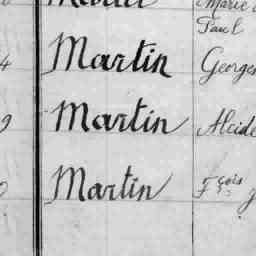 Marie
Paul
4 Martin Georges
9 Martin Alcide
Martin Fçois